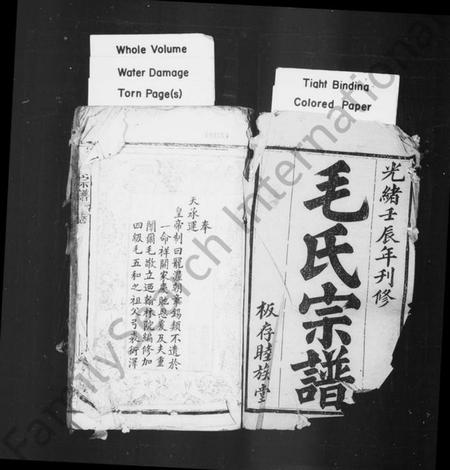 Whole Volume
Water Damage
Torn Page(s)
Tight Binding
Colored Paper
光緒壬辰年刊修
毛氏宗譜
板存睦族堂
奉
天承運
皇帝制曰寵濃朝章錫類不遺於
一命祥開家慶貤恩爰及夫重
闈爾毛散立迺翰林院編修加
四級毛五和之祖父弓衣衍澤
宗譜
FamilySearch International